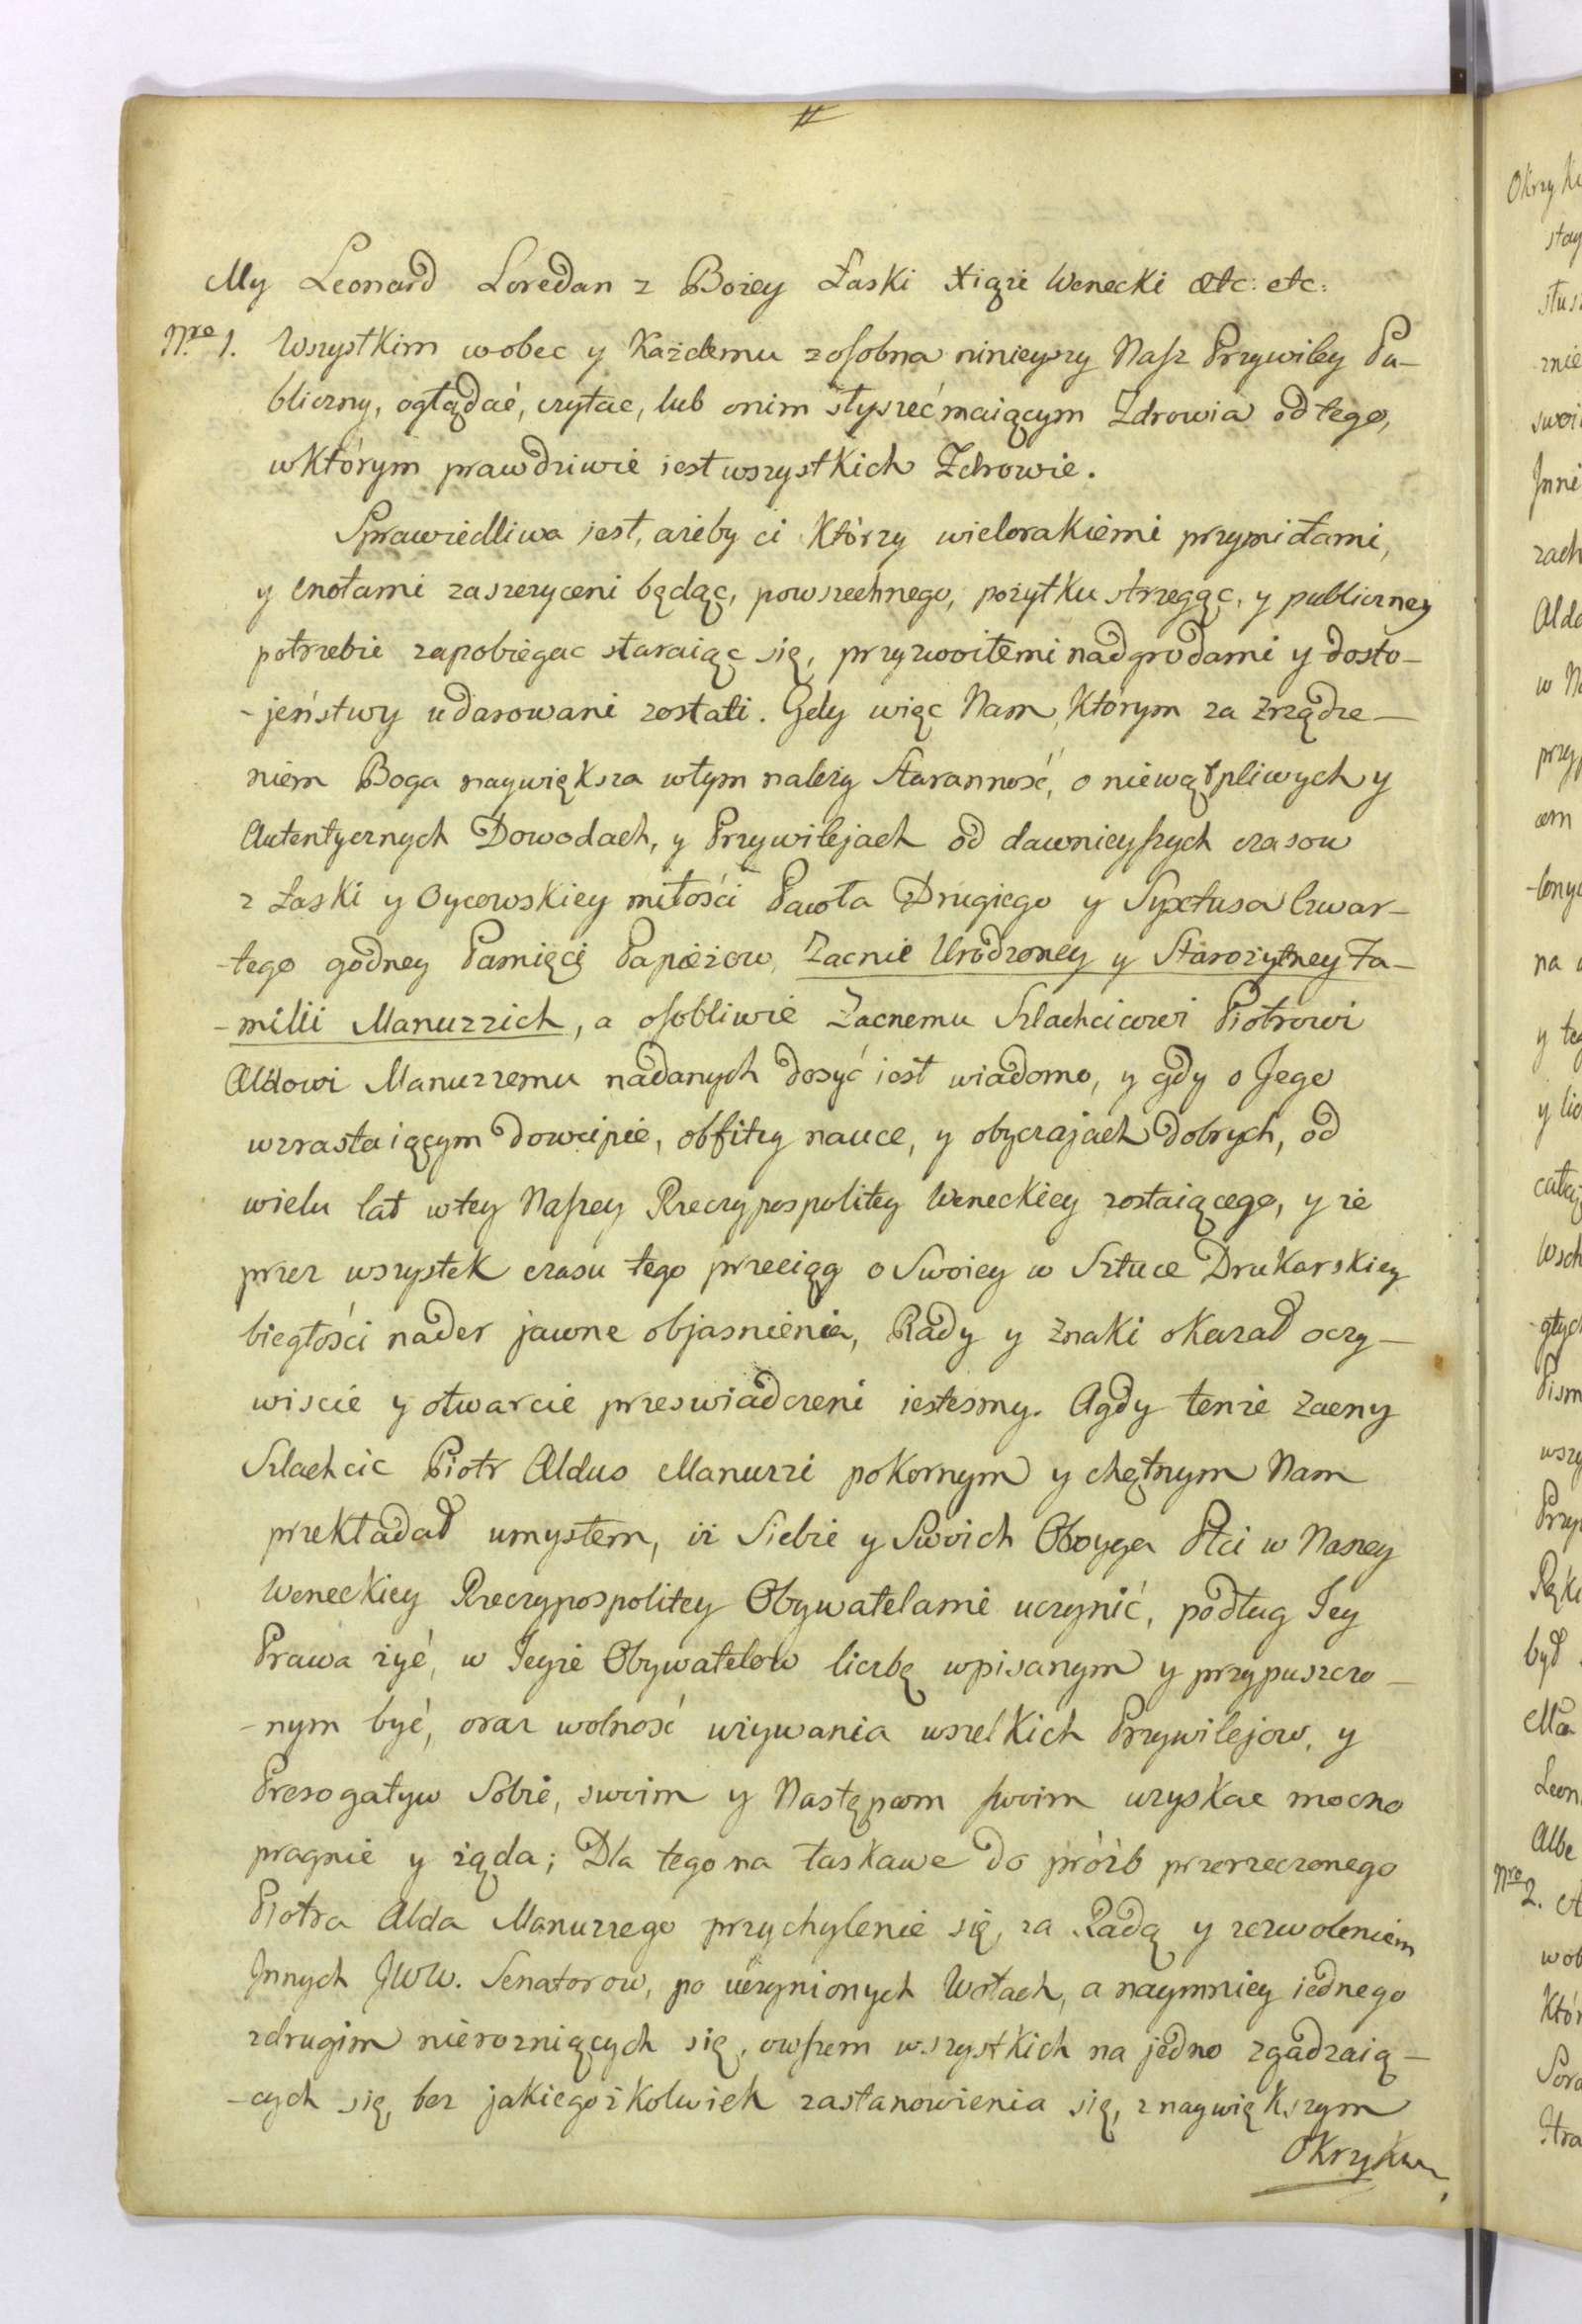 My Leonard Loredan z Bożey Łaski Xiąże Wenecki etc: etc:
Nro 1. Wszystkim wobec y Każdemu zosobna ninieyszy Nasz Przywiley Pu-
bliczny, oglądać, czytac, lub onim słyszeć maiącym Zdrowia od tego,
wKtórym prawdziwie iest wszystkich Zdrowie.
Sprawiedliwa iest, ażeby ci Którzy wielorakiemi przymiotami,
y cnotami zaszczyceni będąc, powszechnego, pożytku strzegąc, y publiczney
potrzebie zapobiegac staraiąc się, przyzwoitemi nadgrodami y dosto-
-jeństwy udarowani zostali. Gdy więc Nam, Którym za zrządze-
niem Boga naywiększa wtym należy Staranność, o niewątpliwych y
Autentycznych Dowodach, y Przywilejach od dawnieyszych czasow
z Łaski y Oycowskiey miłości Pawła Drugiego y Syxtusa Czwar-
-tego godney Pamięci Papieżow, Zacnie Urodzoney y Starożytney Fa-
-milii Manuzzich, a osobliwie Zacnemu Szlachcicowi Piotrowi
Aldowi Manuzzemu nadanych dosyć iest wiadomo, y gdy o Jego
wzrastaiącym dowcipie, obfitey nauce, y obyczajach dobrych, od
wielu lat wtey Naszey Rzeczypospolitey Weneckiey zostaiącego, y że
przez wszystek czasu tego przeciąg o Swoiey w Sztuce Drukarskiey
biegłości nader jawne objasnienia, Rady y Znaki okazał oczy-
wiscie y otwarcie przeswiadczeni iestesmy. Agdy tenże Zacny
Szlachcic Piotr Aldus Manuzzi pokornym y chętnym Nam
przekładał umysłem, iż Siebie y Swoich Oboyga Płci w Naszey
Weneckiey Rzeczypospolitey Obywatelami uczynić, podług Jey
Prawa żyć, w Jeyże Obywatelow liczbę wpisanym y przypuszczo-
-nym być, oraz wolność używania wszelkich Przywilejow, y
Prerogatyw Sobie, swoim y Następcom swoim uzyskac mocno
pragnie y żąda; Dla tego na łaskawe do próźb przerzeczonego
Piotra Alda Manuzzego przychylenie się, za Radą y zezwoleniem
Innych JWW. Senatorow, po uczynionych Wotach, a naymniey iednego
zdrugim nierozniących się, owszem wszystkich na jedno zgadzaią-
-cych się, bez jakiegożkolwiek zastanowienia się, z naywiększym
Okrzykiem,